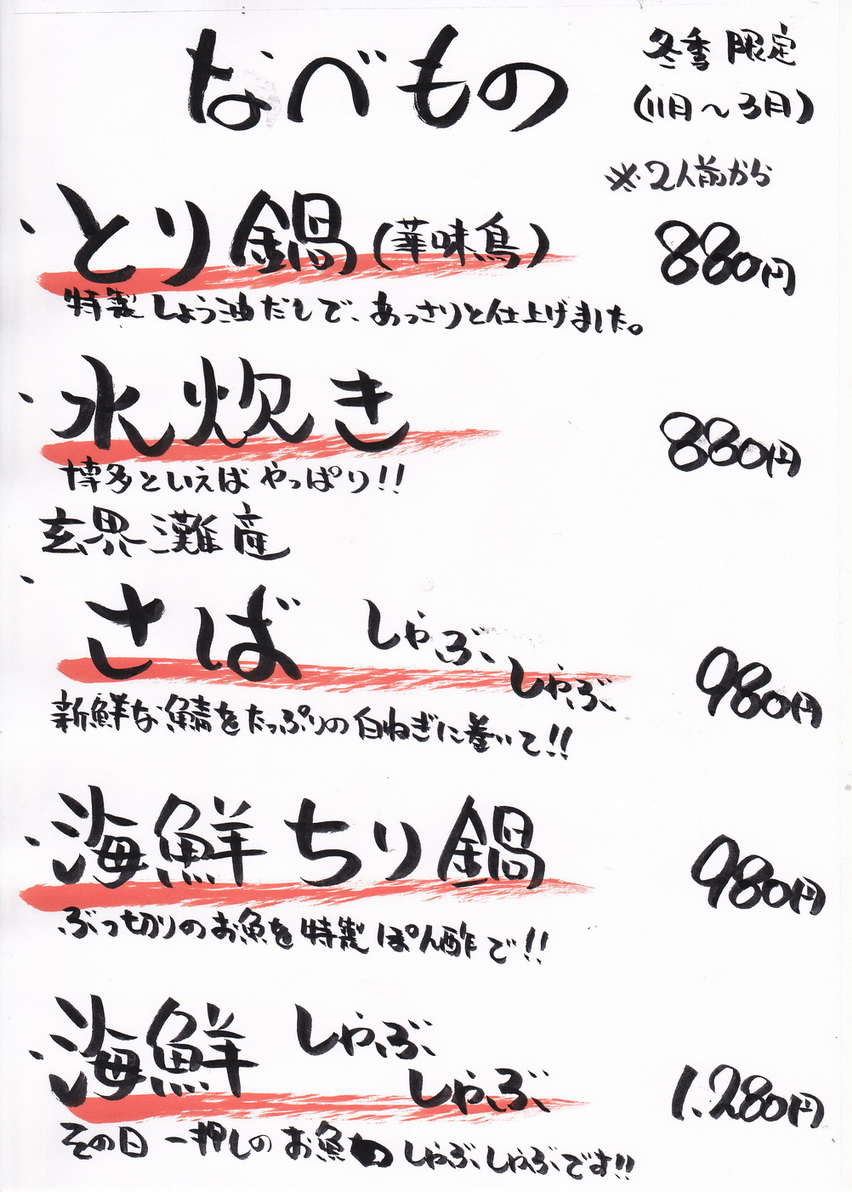 なべもの
冬季限定
(11月～3月)
※2人前から
・とり鍋(華味鳥) 880円
特製しょう油だしで、あっさりと仕上げました。
・水炊き 880円
博多といえばやっぱり!!
玄界灘産
・さばしゃぶしゃぶ 980円
新鮮な鯖をたっぷりの白ねぎに巻いて!!
・海鮮ちり鍋 980円
ぶつ切りのお魚を特製ぽん酢で!!
・海鮮しゃぶしゃぶ 1.280円
その日一押しのお魚のしゃぶしゃぶです!!